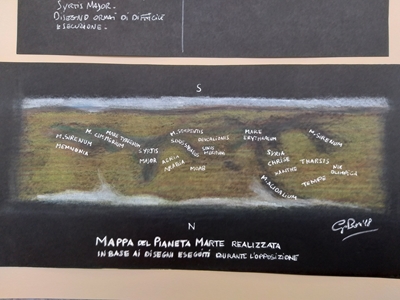 SYRTIS MAJOR.
DISEGNO ORMAI DI DIFFICILE
ESECUZIONE.
S
M. SIRENUM
M. CIMMERIUM
MARE TYRRHENUM
MEMNONIA
SYRTIS
MAJOR
M. SERPENTIS
DEUCALIONIS
SINUS SABAEUS
SINUS
MERIDIANI
AERIA
ARABIA
MOAB
MARE
ERYTHRAEUM
M. SIRENUM
SYRIA
CHRISE
THARSIS
XANTHE
NIX
OLIMPICA
TEMPE
M. ACIDALIUM
N
MAPPA DEL PIANETA MARTE REALIZZATA
IN BASE AI DISEGNI ESEGUITI DURANTE L'OPPOSIZIONE